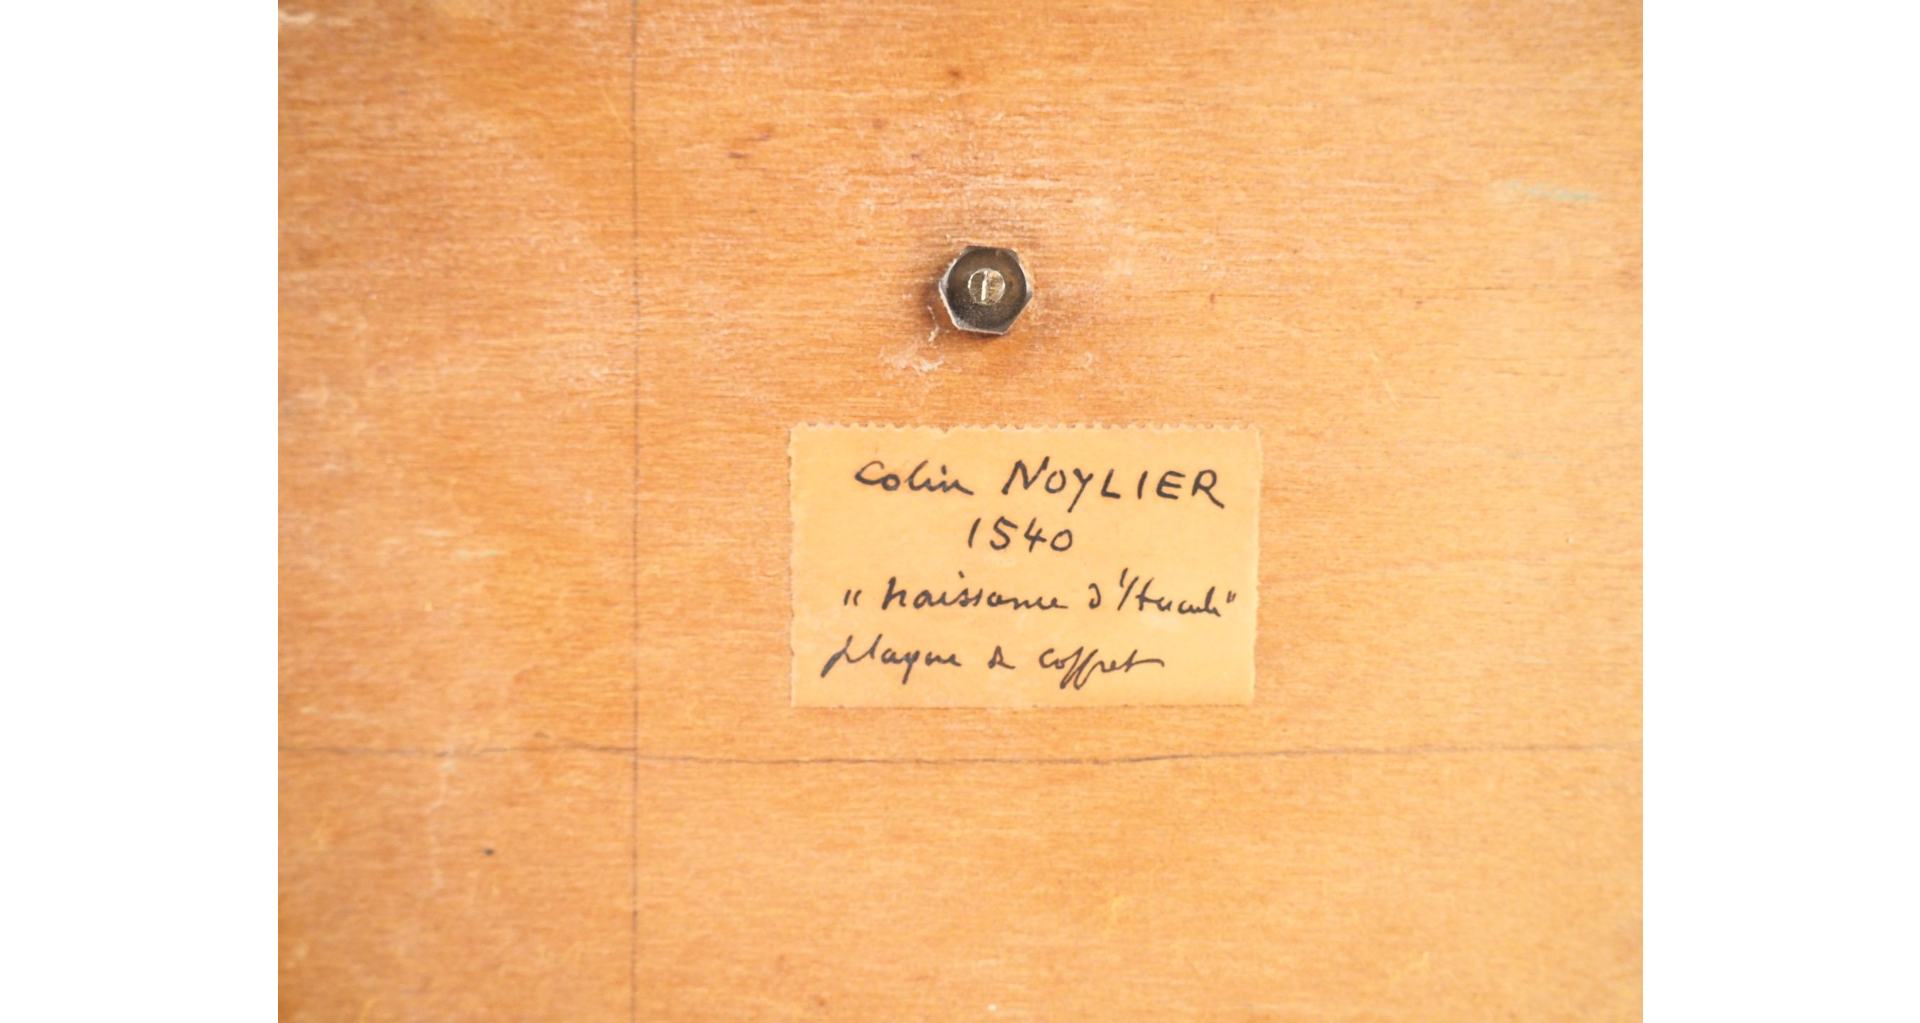 Colin NOYLIER
1540
"naissance d'Hercule"
plaque de coffret